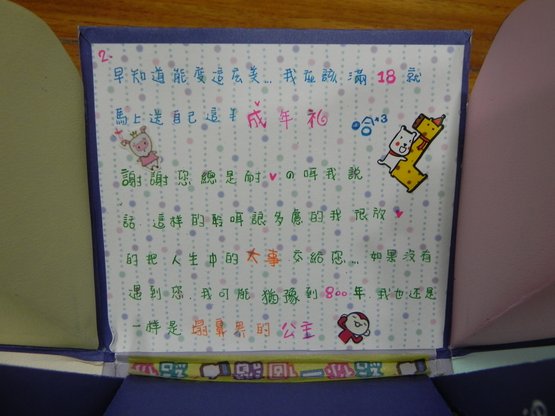 2.
早知道能變這么美... 我應該滿18就
馬上送自己這手成年礼 哈+3
謝謝您總是耐♥の听我說
話 這樣的敢听說多慮的我 很放♥
的把人生中的大事交給您... 如果沒有
遇到您, 我可能猶豫到800年, 我也還是
一樣是塌鼻朵的公主